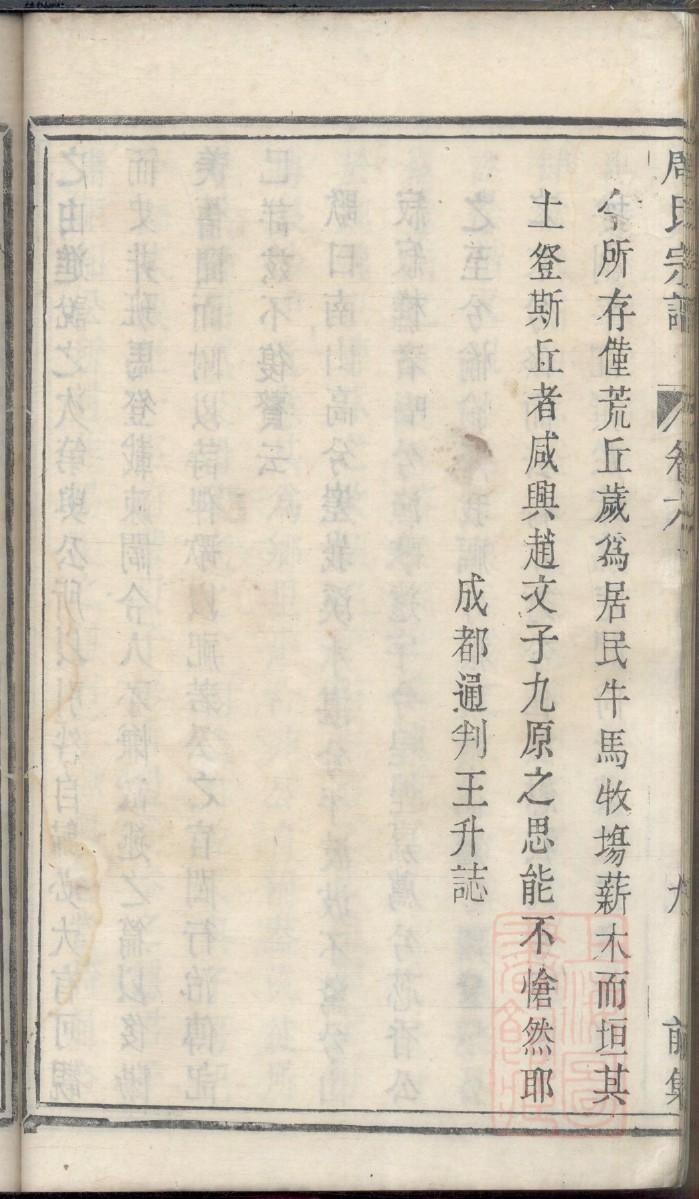 周氏宗譜 卷六 九 前集
今所存僅荒丘歲為居民牛馬牧塲薪木而垣其
土登斯丘者咸興趙文子九原之思能不愴然耶
成都通判王升誌